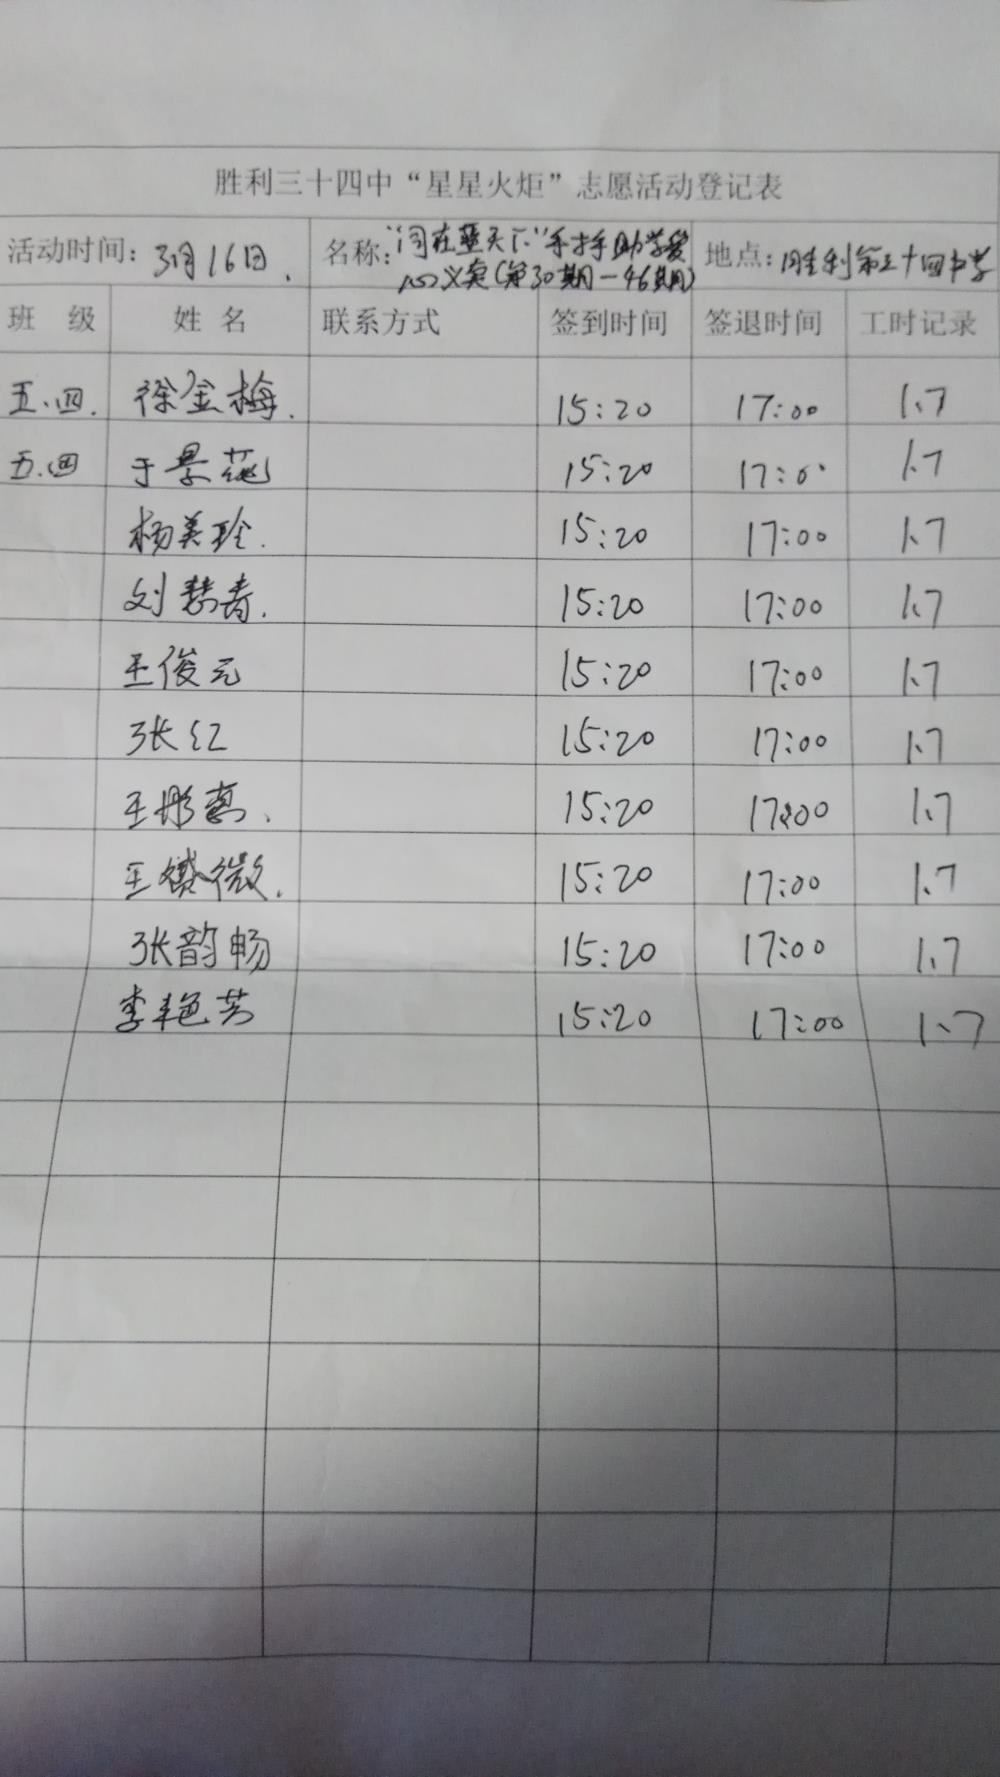 胜利三十四中“星星火炬”志愿活动登记表
活动时间：3月16日. 名称：“同在蓝天下”手拉手助学爱心义卖(第30期—46期) 地点：胜利第三十四中学
班 级 姓 名 联系方式 签到时间 签退时间 工时记录
五.四. 徐金梅. 15:20 17:00 1.7
五.四 于景 15:20 17:00 1.7
杨美玲. 15:20 17:00 1.7
刘慧青. 15:20 17:00 1.7
王俊元 15:20 17:00 1.7
张红 15:20 17:00 1.7
王彤 15:20 17:00 1.7
王 微. 15:20 17:00 1.7
张韵畅 15:20 17:00 1.7
李艳芳 15:20 17:00 1.7